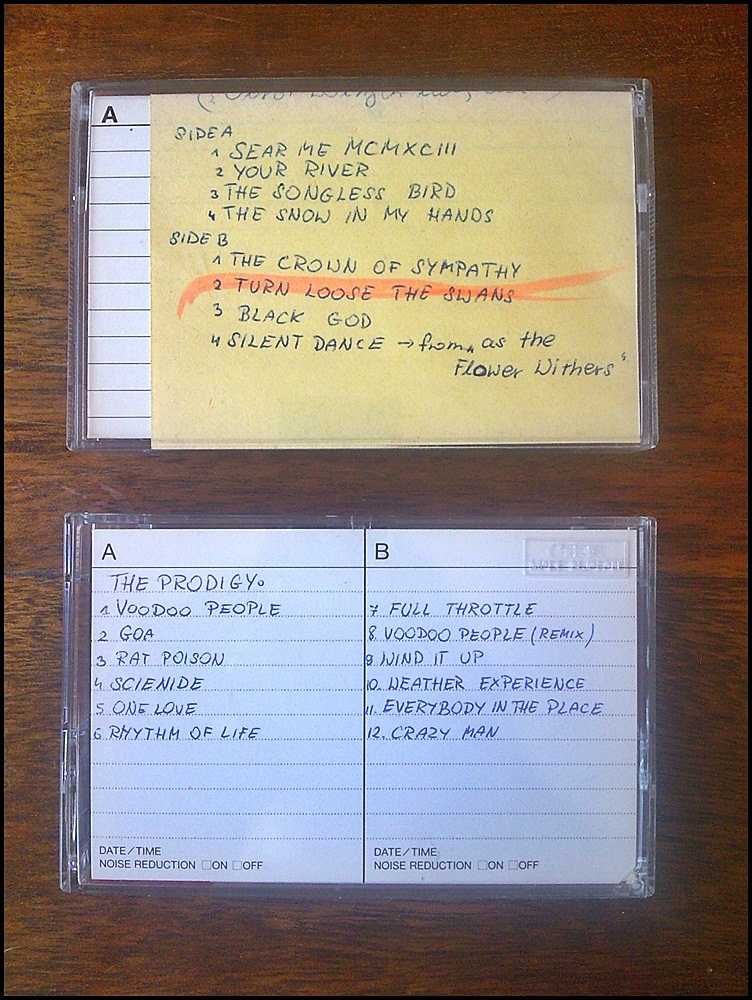 A
SIDE A
1 SEAR ME MCMXCIII
2 YOUR RIVER
3 THE SONGLESS BIRD
4 THE SNOW IN MY HANDS
SIDE B
1 THE CROWN OF SYMPATHY
2 TURN LOOSE THE SWANS
3 BLACK GOD
4 SILENT DANCE → from „as the
Flower Withers“
A
THE PRODIGY.
1 VOODOO PEOPLE
2 GOA
3 RAT POISON
4 SCIENIDE
5 ONE LOVE
6 RHYTHM OF LIFE
DATE/TIME
NOISE REDUCTION □ON □OFF
B
7 FULL THROTTLE
8 VOODOO PEOPLE (REMIX)
9 WIND IT UP
10. WEATHER EXPERIENCE
11. EVERYBODY IN THE PLACE
12. CRAZY MAN
DATE/TIME
NOISE REDUCTION □ON □OFF